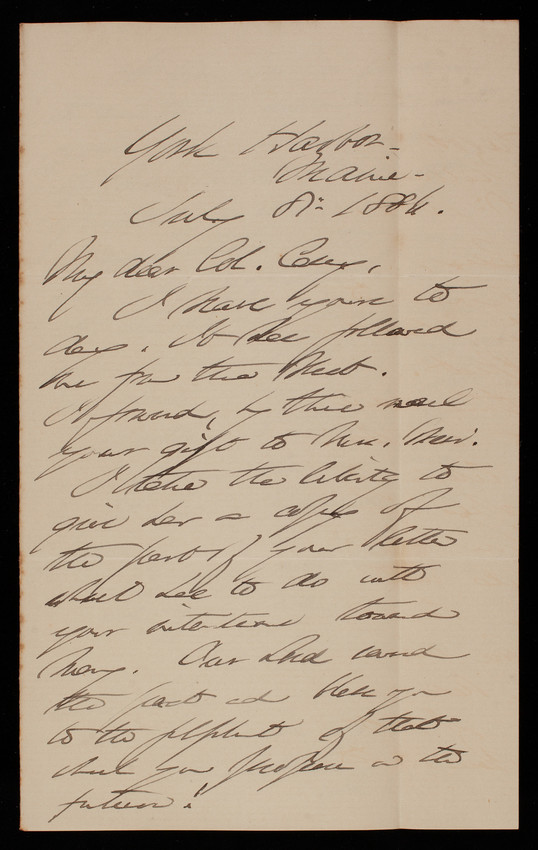 York Harbor -
Maine -
July 8th 1884.
My dear Col. Casey,
I have yours to
day. It has followed
me from the West.
I forward, by this mail
your gift to Mrs.
I take the liberty to
give her a copy of
the part of your letter
which has to do with
your intentions toward
Our Lord
the past and bless you
to the of that
which you propose in the
future!"